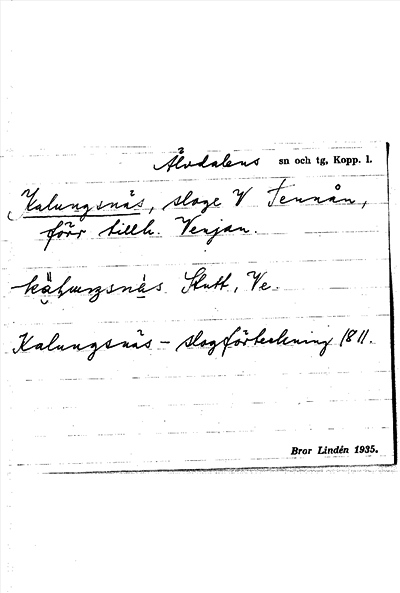 Älvdalens sn och tg, Kopp. l.
Kalungsnäs, sloge V Tennån,
förr tillh. Venjan.
Stutt, Ve.
Kalungsnäs – slogförteckning 1811.
Bror Lindén 1935.